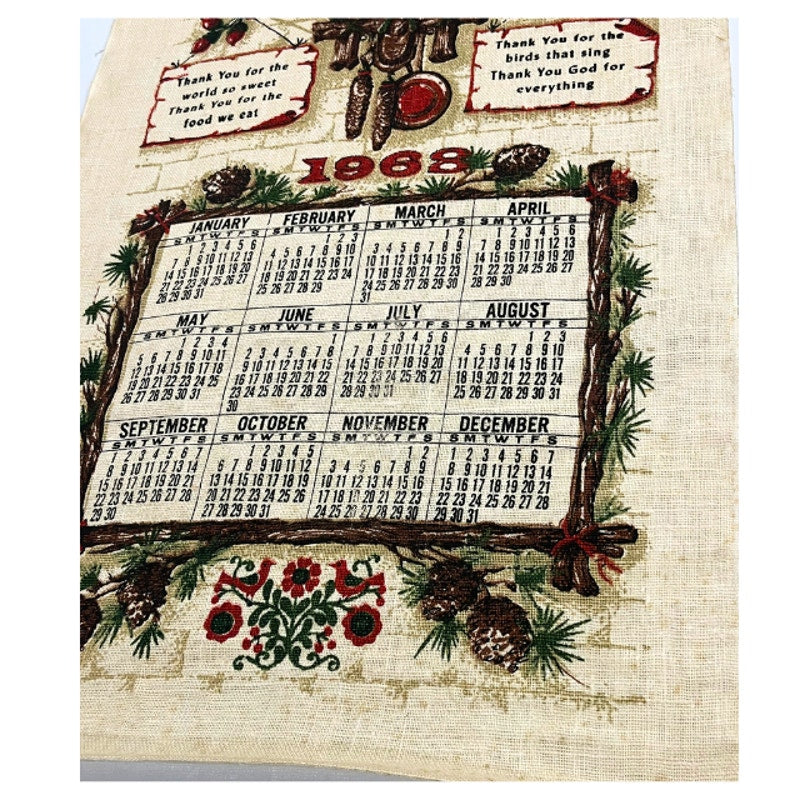 Thank You for the
world so sweet
Thank You for the
food we eat
Thank You for the
birds that sing
Thank You God for
everything
1968
JANUARY
S M T W T F S
1 2 3 4 5 6
7 8 9 10 11 12 13
14 15 16 17 18 19 20
21 22 23 24 25 26 27
28 29 30 31
FEBRUARY
S M T W T F S
1 2 3
4 5 6 7 8 9 10
11 12 13 14 15 16 17
18 19 20 21 22 23 24
25 26 27 28 29
MARCH
S M T W T F S
1 2
3 4 5 6 7 8 9
10 11 12 13 14 15 16
17 18 19 20 21 22 23
24 25 26 27 28 29 30
31
APRIL
S M T W T F S
1 2 3 4 5 6
7 8 9 10 11 12 13
14 15 16 17 18 19 20
21 22 23 24 25 26 27
28 29 30
MAY
S M T W T F S
1 2 3 4
5 6 7 8 9 10 11
12 13 14 15 16 17 18
19 20 21 22 23 24 25
26 27 28 29 30 31
JUNE
S M T W T F S
1
2 3 4 5 6 7 8
9 10 11 12 13 14 15
16 17 18 19 20 21 22
23 24 25 26 27 28 29
30
JULY
S M T W T F S
1 2 3 4 5 6
7 8 9 10 11 12 13
14 15 16 17 18 19 20
21 22 23 24 25 26 27
28 29 30 31
AUGUST
S M T W T F S
1 2 3
4 5 6 7 8 9 10
11 12 13 14 15 16 17
18 19 20 21 22 23 24
25 26 27 28 29 30 31
SEPTEMBER
S M T W T F S
1 2 3 4 5 6 7
8 9 10 11 12 13 14
15 16 17 18 19 20 21
22 23 24 25 26 27 28
29 30
OCTOBER
S M T W T F S
1 2 3 4 5
6 7 8 9 10 11 12
13 14 15 16 17 18 19
20 21 22 23 24 25 26
27 28 29 30 31
NOVEMBER
S M T W T F S
1 2
3 4 5 6 7 8 9
10 11 12 13 14 15 16
17 18 19 20 21 22 23
24 25 26 27 28 29 30
DECEMBER
S M T W T F S
1 2 3 4 5 6 7
8 9 10 11 12 13 14
15 16 17 18 19 20 21
22 23 24 25 26 27 28
29 30 31